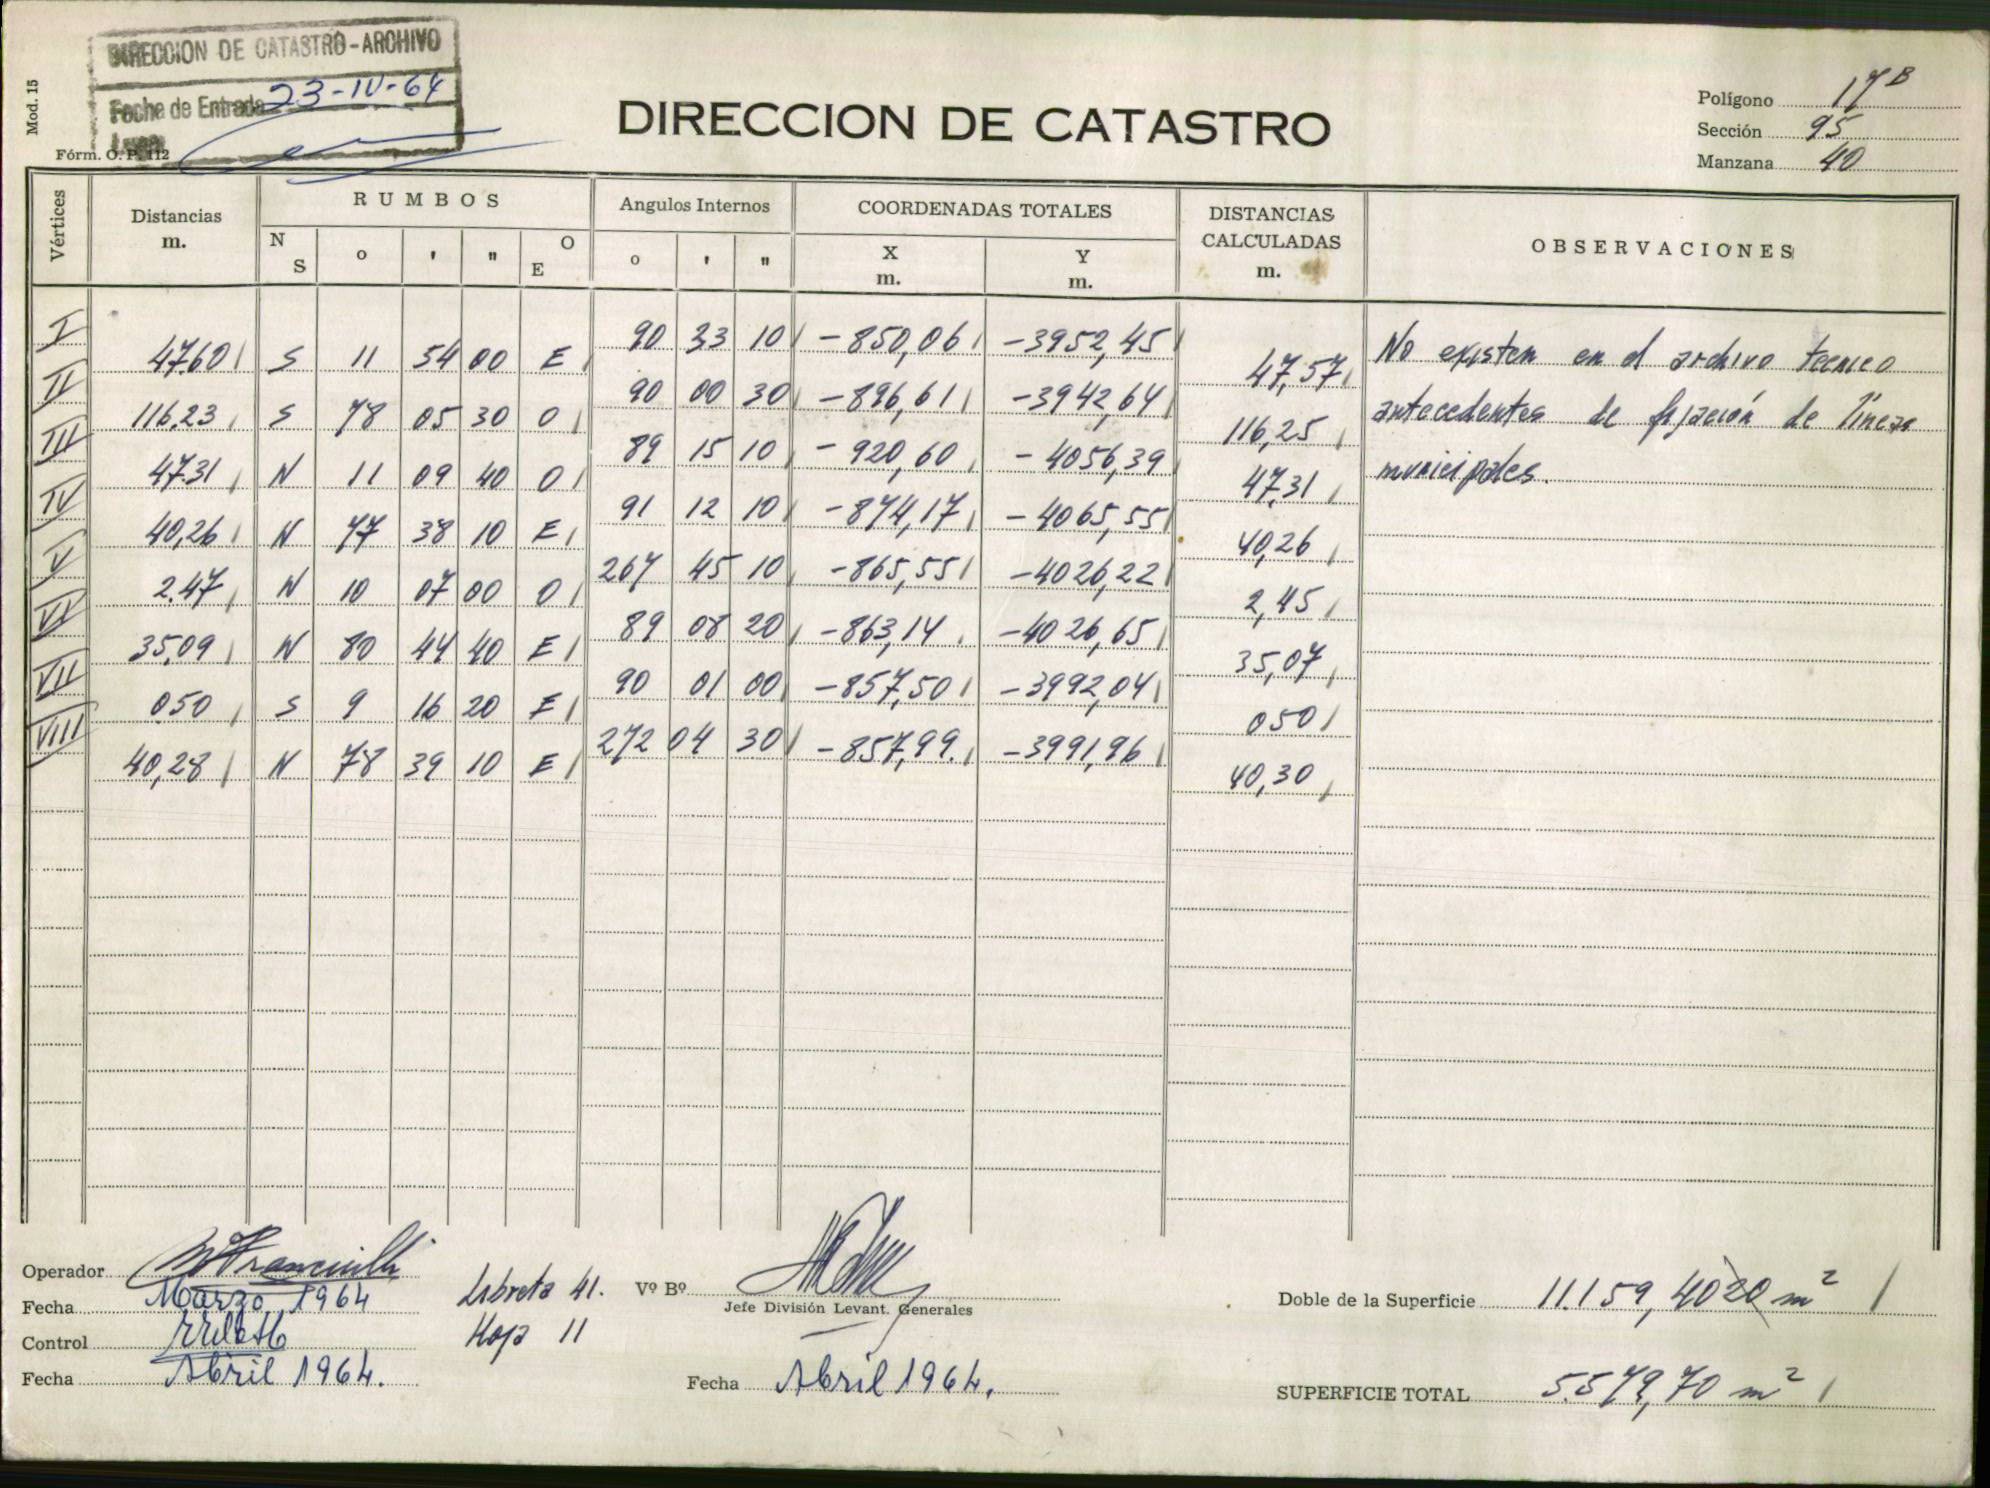 DIRECCION DE CATASTRO-ARCHIVO
Fecha de Entrada 23-IV-64
Mod. 15
Fórm. O. P. 112
DIRECCION DE CATASTRO
Polígono 17B
Sección 95
Manzana 40
Vértices Distancias m. RUMBOS N S o ' " O E Angulos Internos o ' " COORDENADAS TOTALES X m. Y m. DISTANCIAS CALCULADAS m. OBSERVACIONES
I 90 33 10 -850,06 -3952,45
47.60 S 11 54 00 E 47,57 No existen en el archivo tecnico
II 90 00 30 -896,61 -3942,64
116.23 S 78 05 30 O 116,25 antecedentes de fijación de líneas
III 89 15 10 -920,60 -4056,39
47.31 N 11 09 40 O 47,31 municipales.
IV 91 12 10 -874,17 -4065,55
40,26 N 77 38 10 E 40,26
V 267 45 10 -865,55 -4026,22
2.47 N 10 07 00 O 2,45
VI 89 08 20 -863,14 -4026,65
35,09 N 80 44 40 E 35,07
VII 90 01 00 -857,50 -3992,04
0.50 S 9 16 20 E 0.50
VIII 272 04 30 -857,99 -3991,96
40,28 N 78 39 10 E 40,30
Operador
Fecha Marzo 1964
Control
Fecha Abril 1964.
Libreta 41.
Hoja 11
Vº Bº
Jefe División Levant. Generales
Fecha Abril 1964.
Doble de la Superficie 11.159,4020 m2
SUPERFICIE TOTAL 5.579,70 m2